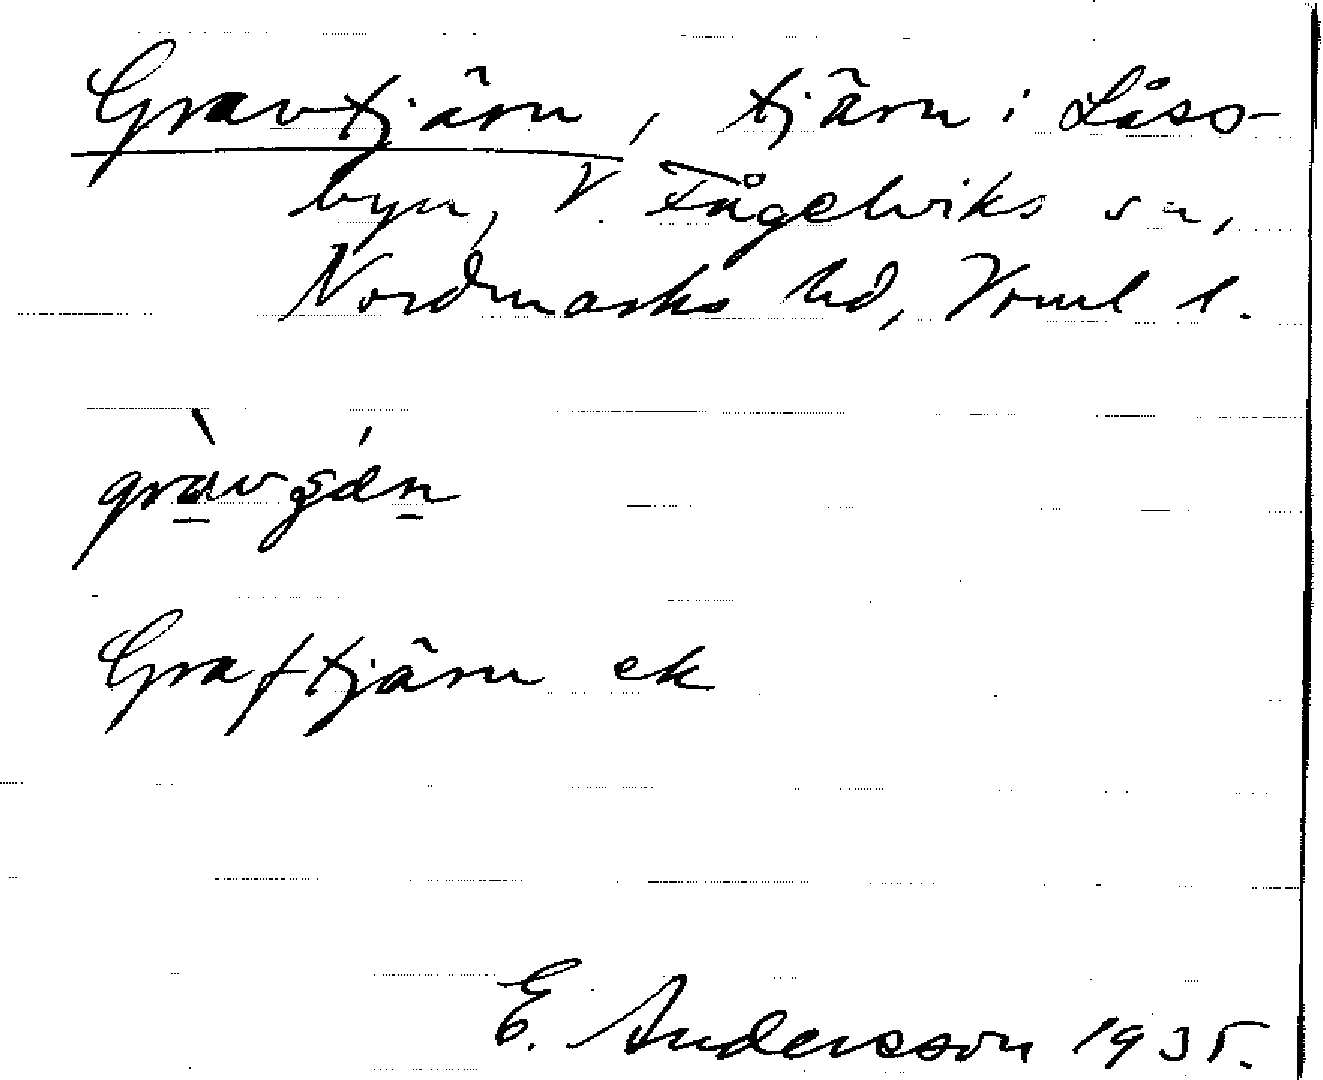 Gravtjärn, tjärn i Låss-
byn, V. Fågelviks sn,
Nordmarks hd, Vrml l.
Graftjärn ek
E. Andersson 1935.